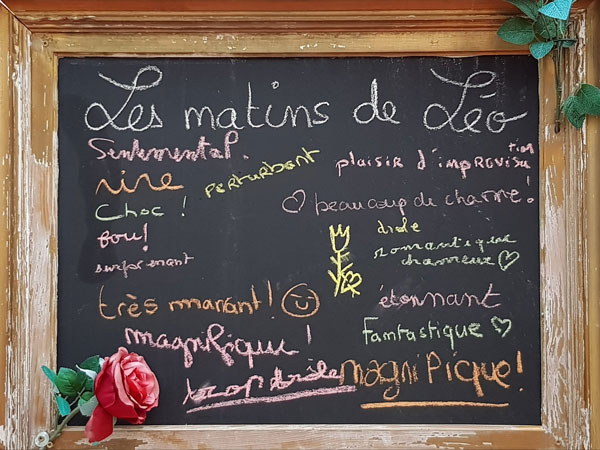 Les matins de Léo
Sentimental.
rire
perturbant
plaisir d'improvisation
Choc !
♡ beaucoup de charme!
fou!
drôle
romantique
charmeur ♡
surprenant
très marrant!
étonnant
magnifique!
Fantastique ♡
trop drôle
magnifique!